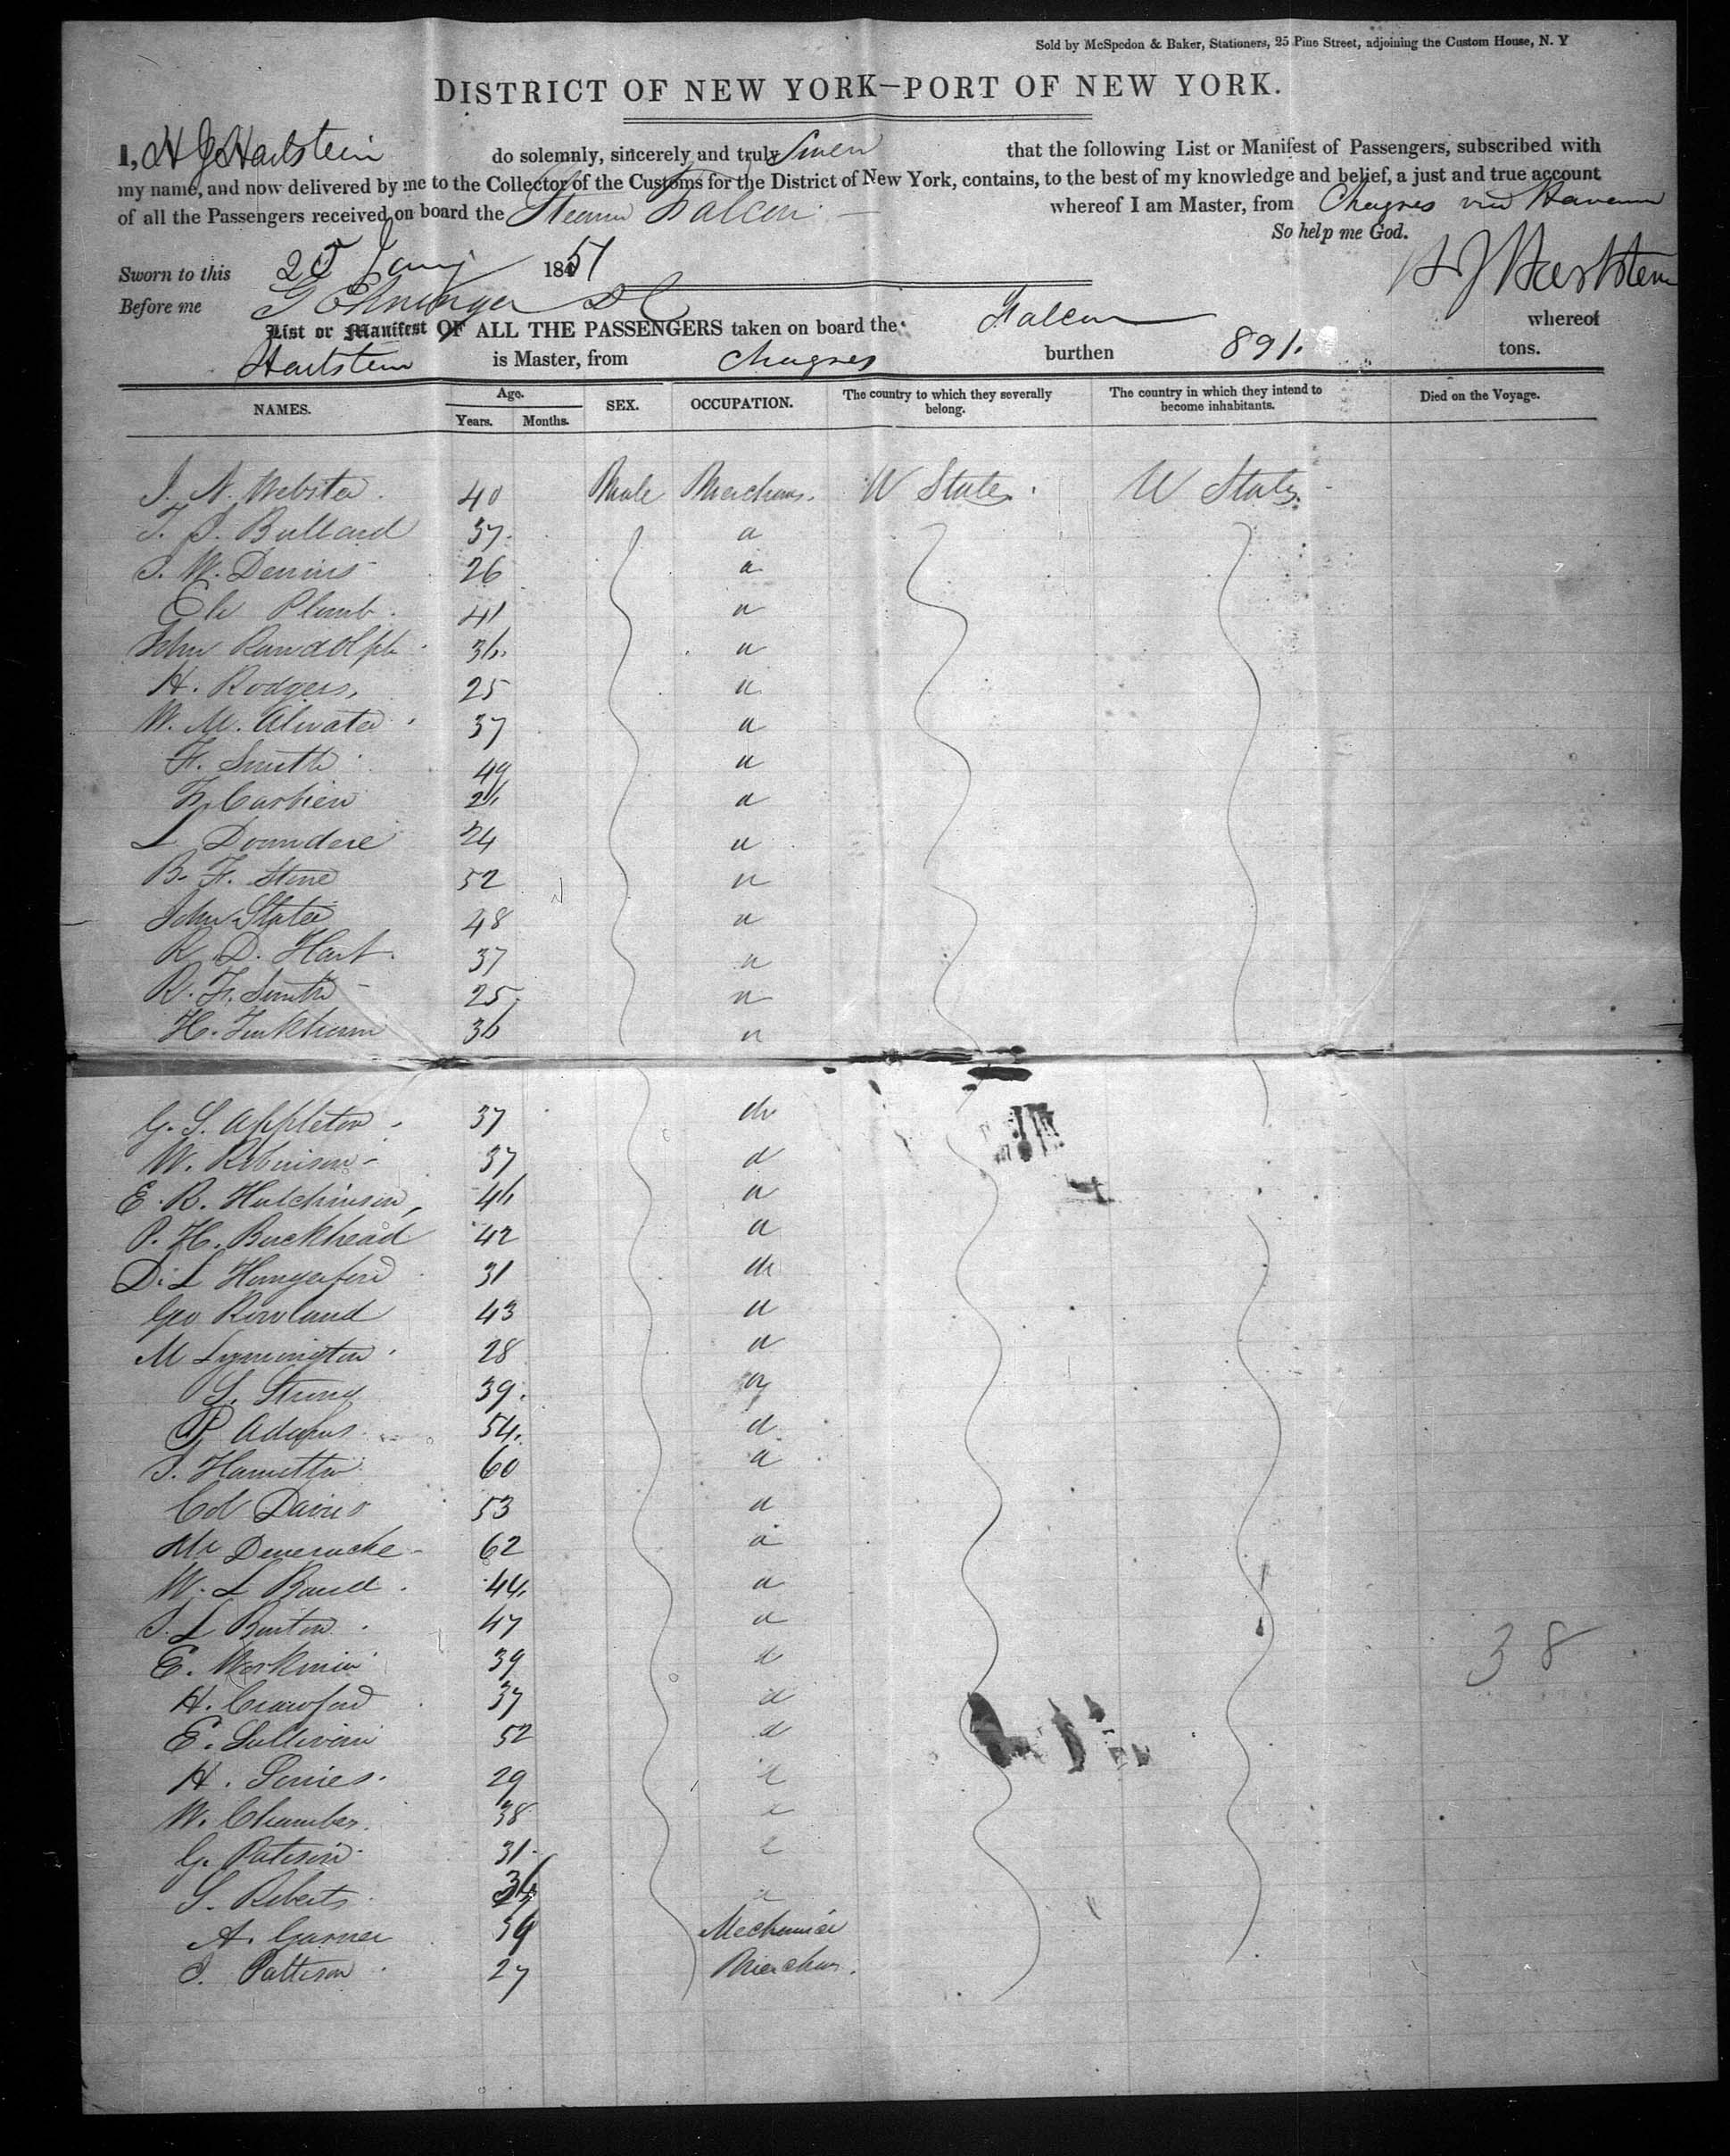 Sold by McSpedon & Baker, Stationers, 25 Pine Street, adjoining the Custom House, N. Y
DISTRICT OF NEW YORK—PORT OF NEW YORK.
I, H J Hartstein do solemnly, sincerely and truly Swear that the following List or Manifest of Passengers, subscribed with
my name, and now delivered by me to the Collector of the Customs for the District of New York, contains, to the best of my knowledge and belief, a just and true account
of all the Passengers received on board the Steamer Falcon whereof I am Master, from Chagres via Havana
So help me God.
Sworn to this 25 Jany 1851
H J Hartstein
Before me
List or Manifest OF ALL THE PASSENGERS taken on board the Falcon whereof
Hartstein is Master, from Chagres burthen 891. tons.
NAMES. Age. Years. Months. SEX. OCCUPATION. The country to which they severally belong. The country in which they intend to become inhabitants. Died on the Voyage.
J. N. Webster. 40 Male Merchant. U States. U States.
T. S. Bullard 37 "
S. W. Dennis 26 "
Eli Plumb 41 "
John Randolph 36 "
H. Rodgers, 25 "
W. M. Atwater 37 "
F. Smith 49 "
26 "
L 24 "
B. F. Stone 52 "
John Slater 48 "
R. D. Hart. 37 "
R. F. Smith 25 "
H. Finkham 36 "
G. S. Appleton 37 do
W. Robinson 37 "
E. R. Hutchinson, 46 "
P. H. Buckhead 42 "
D. L Hungerford 31 do
Geo Rowland 43 "
M Lymington 28 "
S. Strong 39. "
P Adams 54. "
S. Hamilton 60 "
Col Davis 53 "
Mr 62 "
W. L 44. "
S. L Burton 47 "
E. 39 "
H. Crawford 37 "
E. Sullivan 52 "
H. 29 "
W. Chamber 38 "
G. 31 "
S. Roberts "
A. Garner 39 Mechanic
J. Pattison 27 Merchan.
38